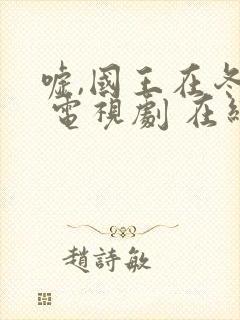 嘘,國王在冬
電視劇 在線
趙詩敏